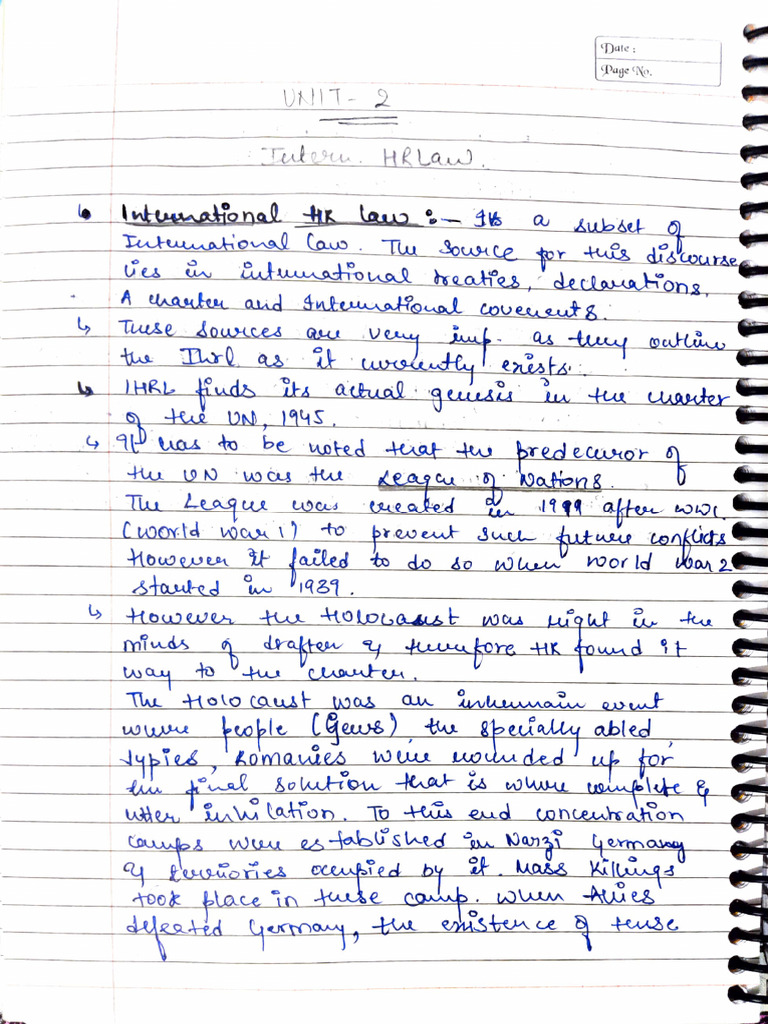 Date :
Page No.
UNIT - 2
Intern. HRLaw.
International HR Law :- Its a subset of
International Law. The source for this discourse
lies in international treaties, declarations,
A charter and International covenents.
These sources are very imp. as they outline
the Ihrl as it currently exists.
IHRL finds its actual genesis in the charter
of the UN, 1945.
It has to be noted that the predecuror of
the UN was the League of Nations.
The League was created in 1919 after WW1.
(World war 1) to prevent such future conflicts
However it failed to do so when world war 2
started in 1939.
However the Holocaust was right in the
minds of drafter & therefore HR found it
way to the charter.
The Holocaust was an inhumain event
where people (Jews), the specially abled,
gypies, Romanies were rounded up for
the final solution that is where complete &
utter inhilation. To this end concentration
camps were established in Narzi Germany
& terriories occupied by it. Mass Killings
took place in these camp. when Allies
defeated Germany, the existence of tense